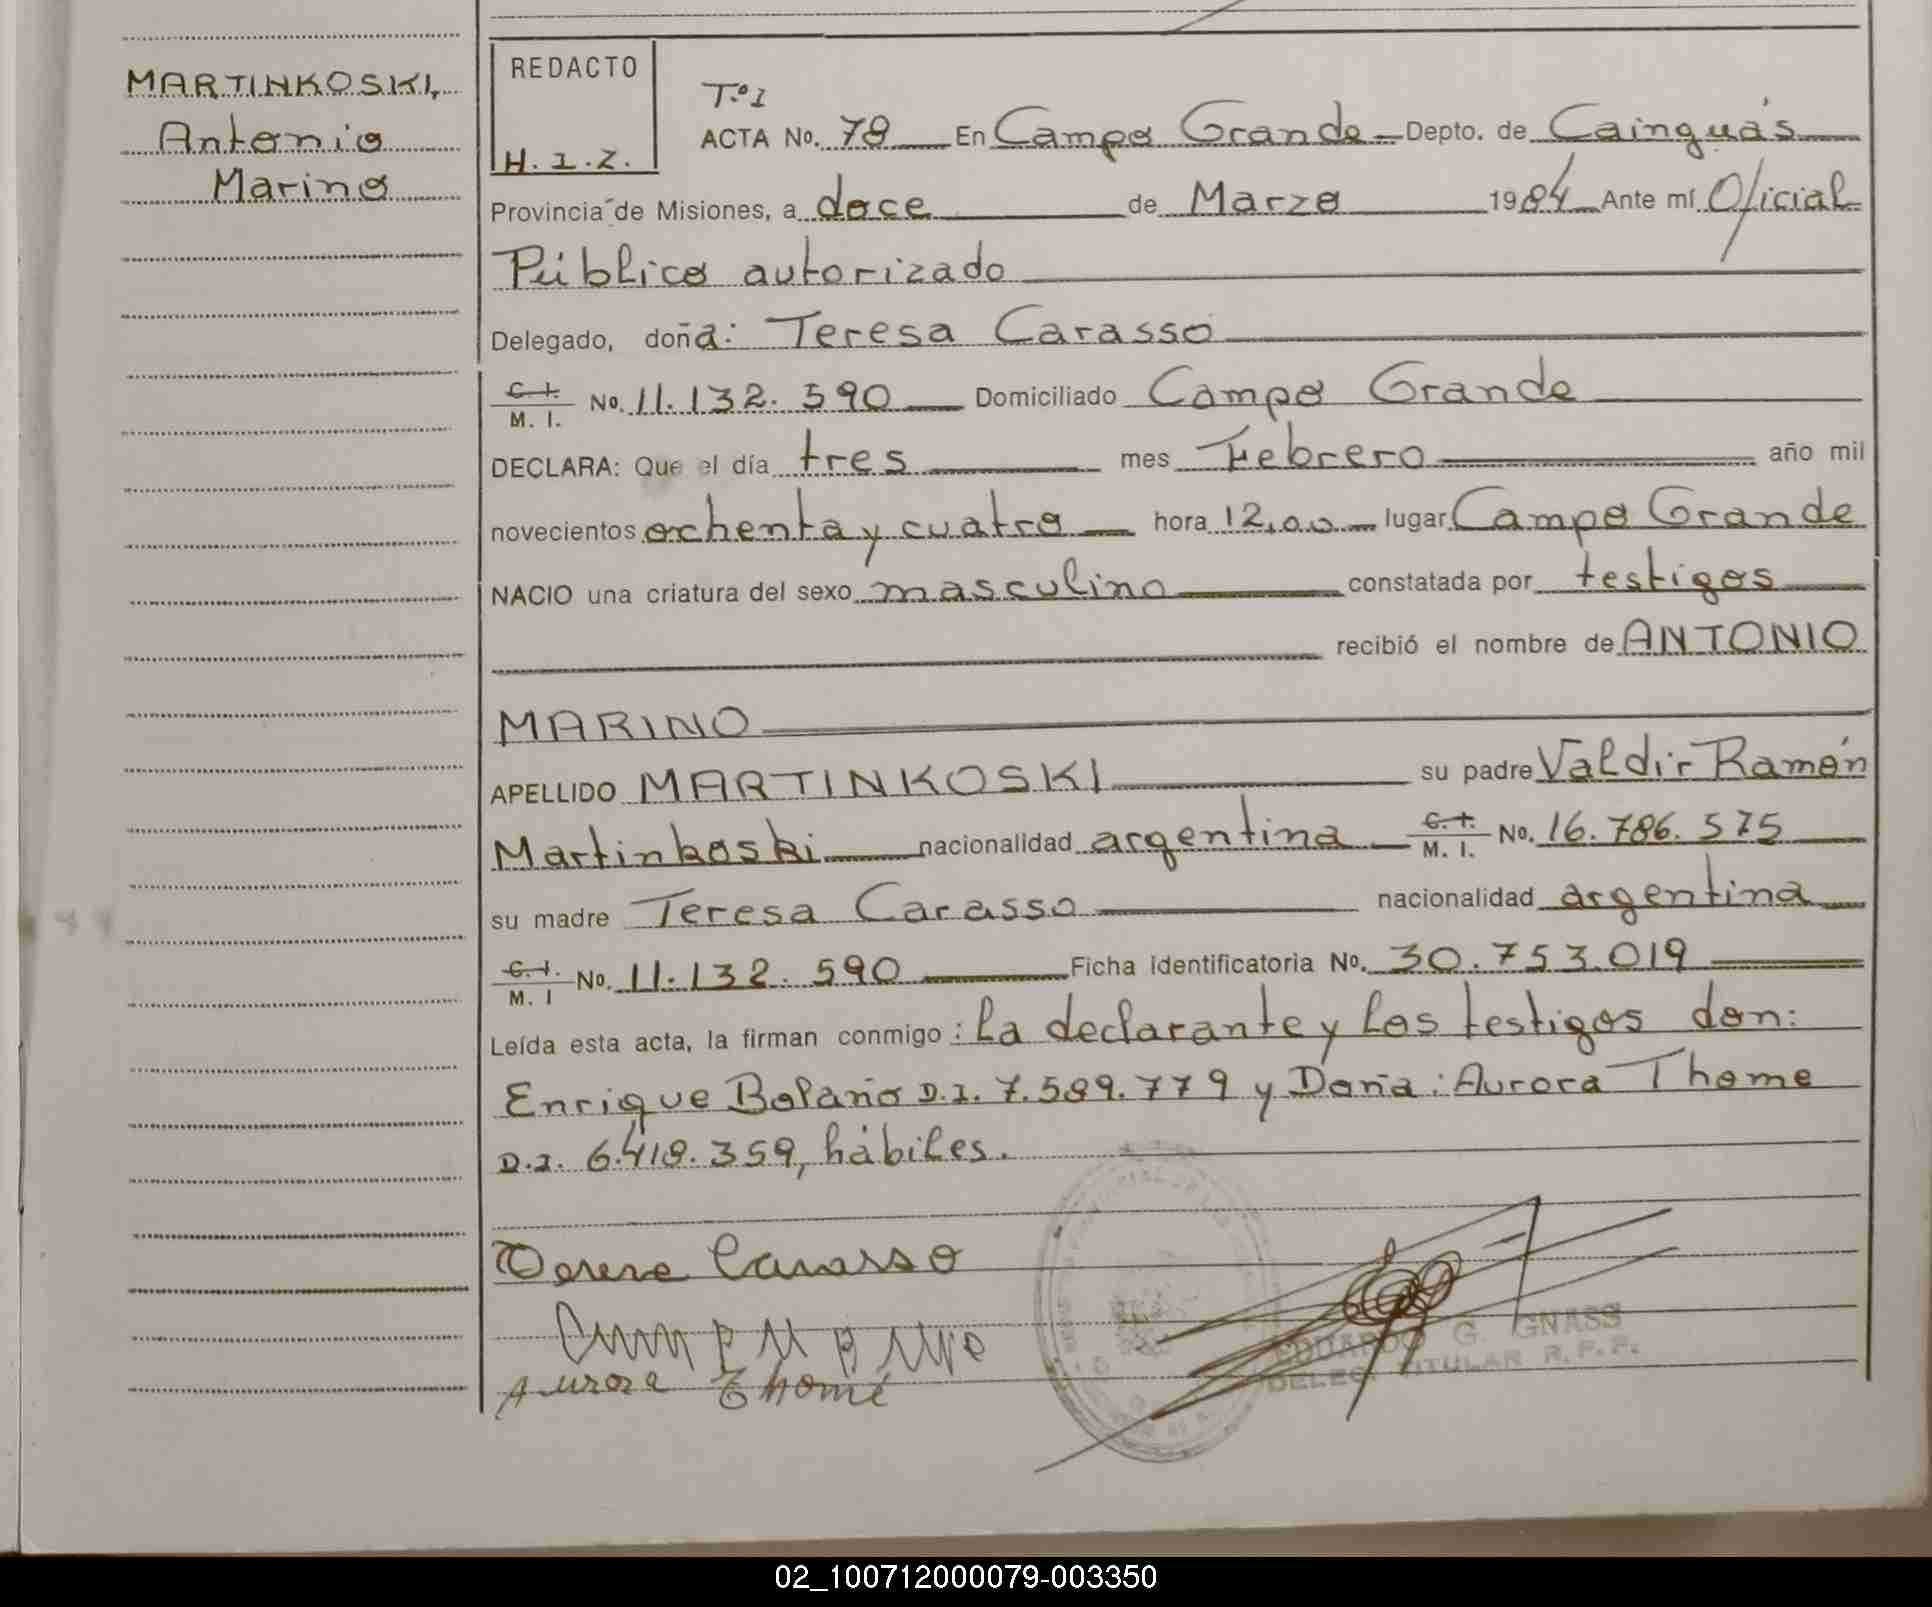 MARTINKOSKI,
Antonio
Marino
REDACTO
H. I. Z.
T.º I
ACTA No. 78 En Campo Grande Depto. de Cainguás
Provincia de Misiones, a doce de Marzo 1984 Ante mí Oficial
Público autorizado
Delegado, doña: Teresa Carasso
C. I. M. I. No. 11.132.590 Domiciliado Campo Grande
DECLARA: Que el día tres mes Febrero año mil
novecientos ochenta y cuatro hora 12,00 lugar Campo Grande
NACIO una criatura del sexo masculino constatada por testigos
recibió el nombre de ANTONIO
MARINO
APELLIDO MARTINKOSKI su padre Valdir Ramón
Martinkoski nacionalidad argentina C. I. M. I. No. 16.786.575
su madre Teresa Carasso nacionalidad argentina
C. I. M. I No. 11.132.590 Ficha Identificatoria No. 30.753.019
Leída esta acta, la firman conmigo: la declarante y los testigos don:
Enrique Bolaño D.I. 7.589.779 y Doña: Aurora Thome
D.I. 6.418.359, hábiles.
Carasso
Aurora Thomé
EDUARDO G. GNASS
DELEG. TITULAR R.P.P.
02_100712000079-003350